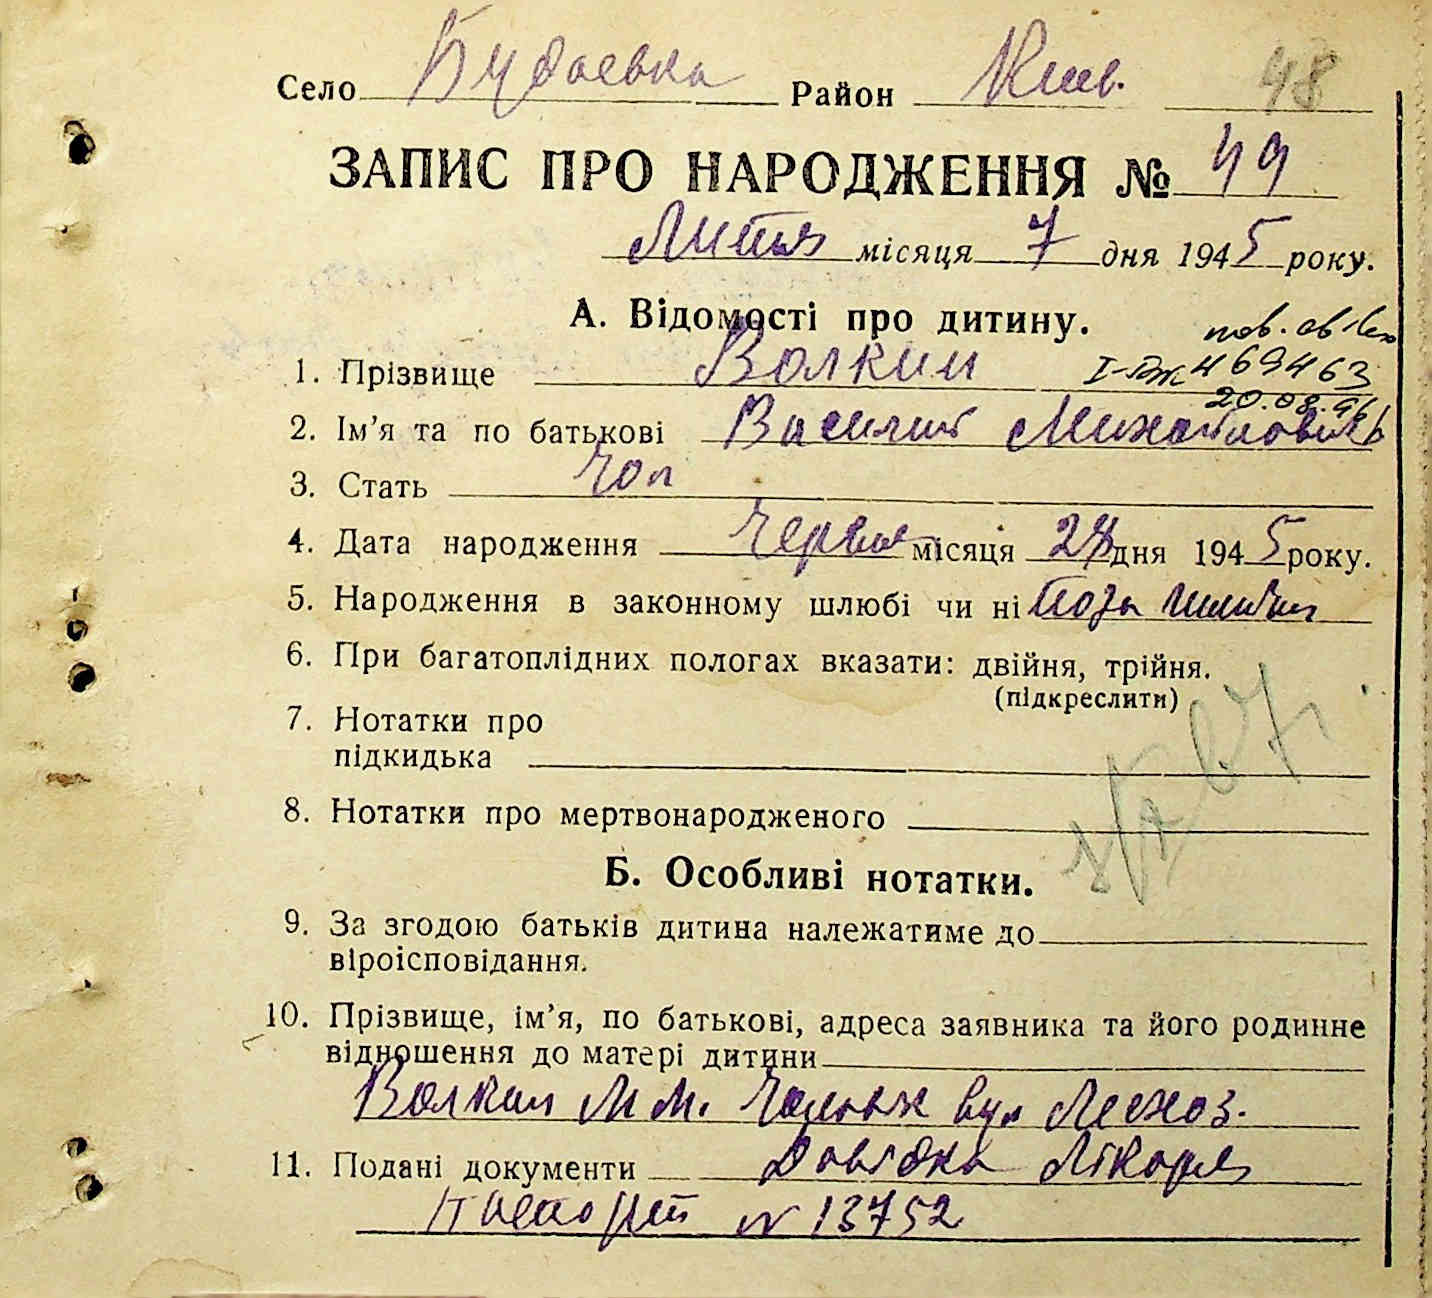 Село Будаевка Район Киев. 48
ЗАПИС ПРО НАРОДЖЕННЯ № 49
Липня місяця 7 дня 1945 року.
А. Відомості про дитину.
пов. св
1. Прізвище Волкин І-БК 469463
20.08.96
2. Ім'я та по батькові Василий Михайлович
3. Стать Чол
4. Дата народження Червня місяця 24 дня 1945 року.
5. Народження в законному шлюбі чи ні Поза шлюбом
6. При багатоплідних пологах вказати: двійня, трійня.
(підкреслити)
7. Нотатки про
підкидька
8. Нотатки про мертвонародженого
Б. Особливі нотатки.
9. За згодою батьків дитина належатиме до
віроісповідання.
10. Прізвище, ім'я, по батькові, адреса заявника та його родинне
відношення до матері дитини
Волкин М М. Чоловік вул Лесхоз.
11. Подані документи Довідка Лікаря
Паспорт № 13752